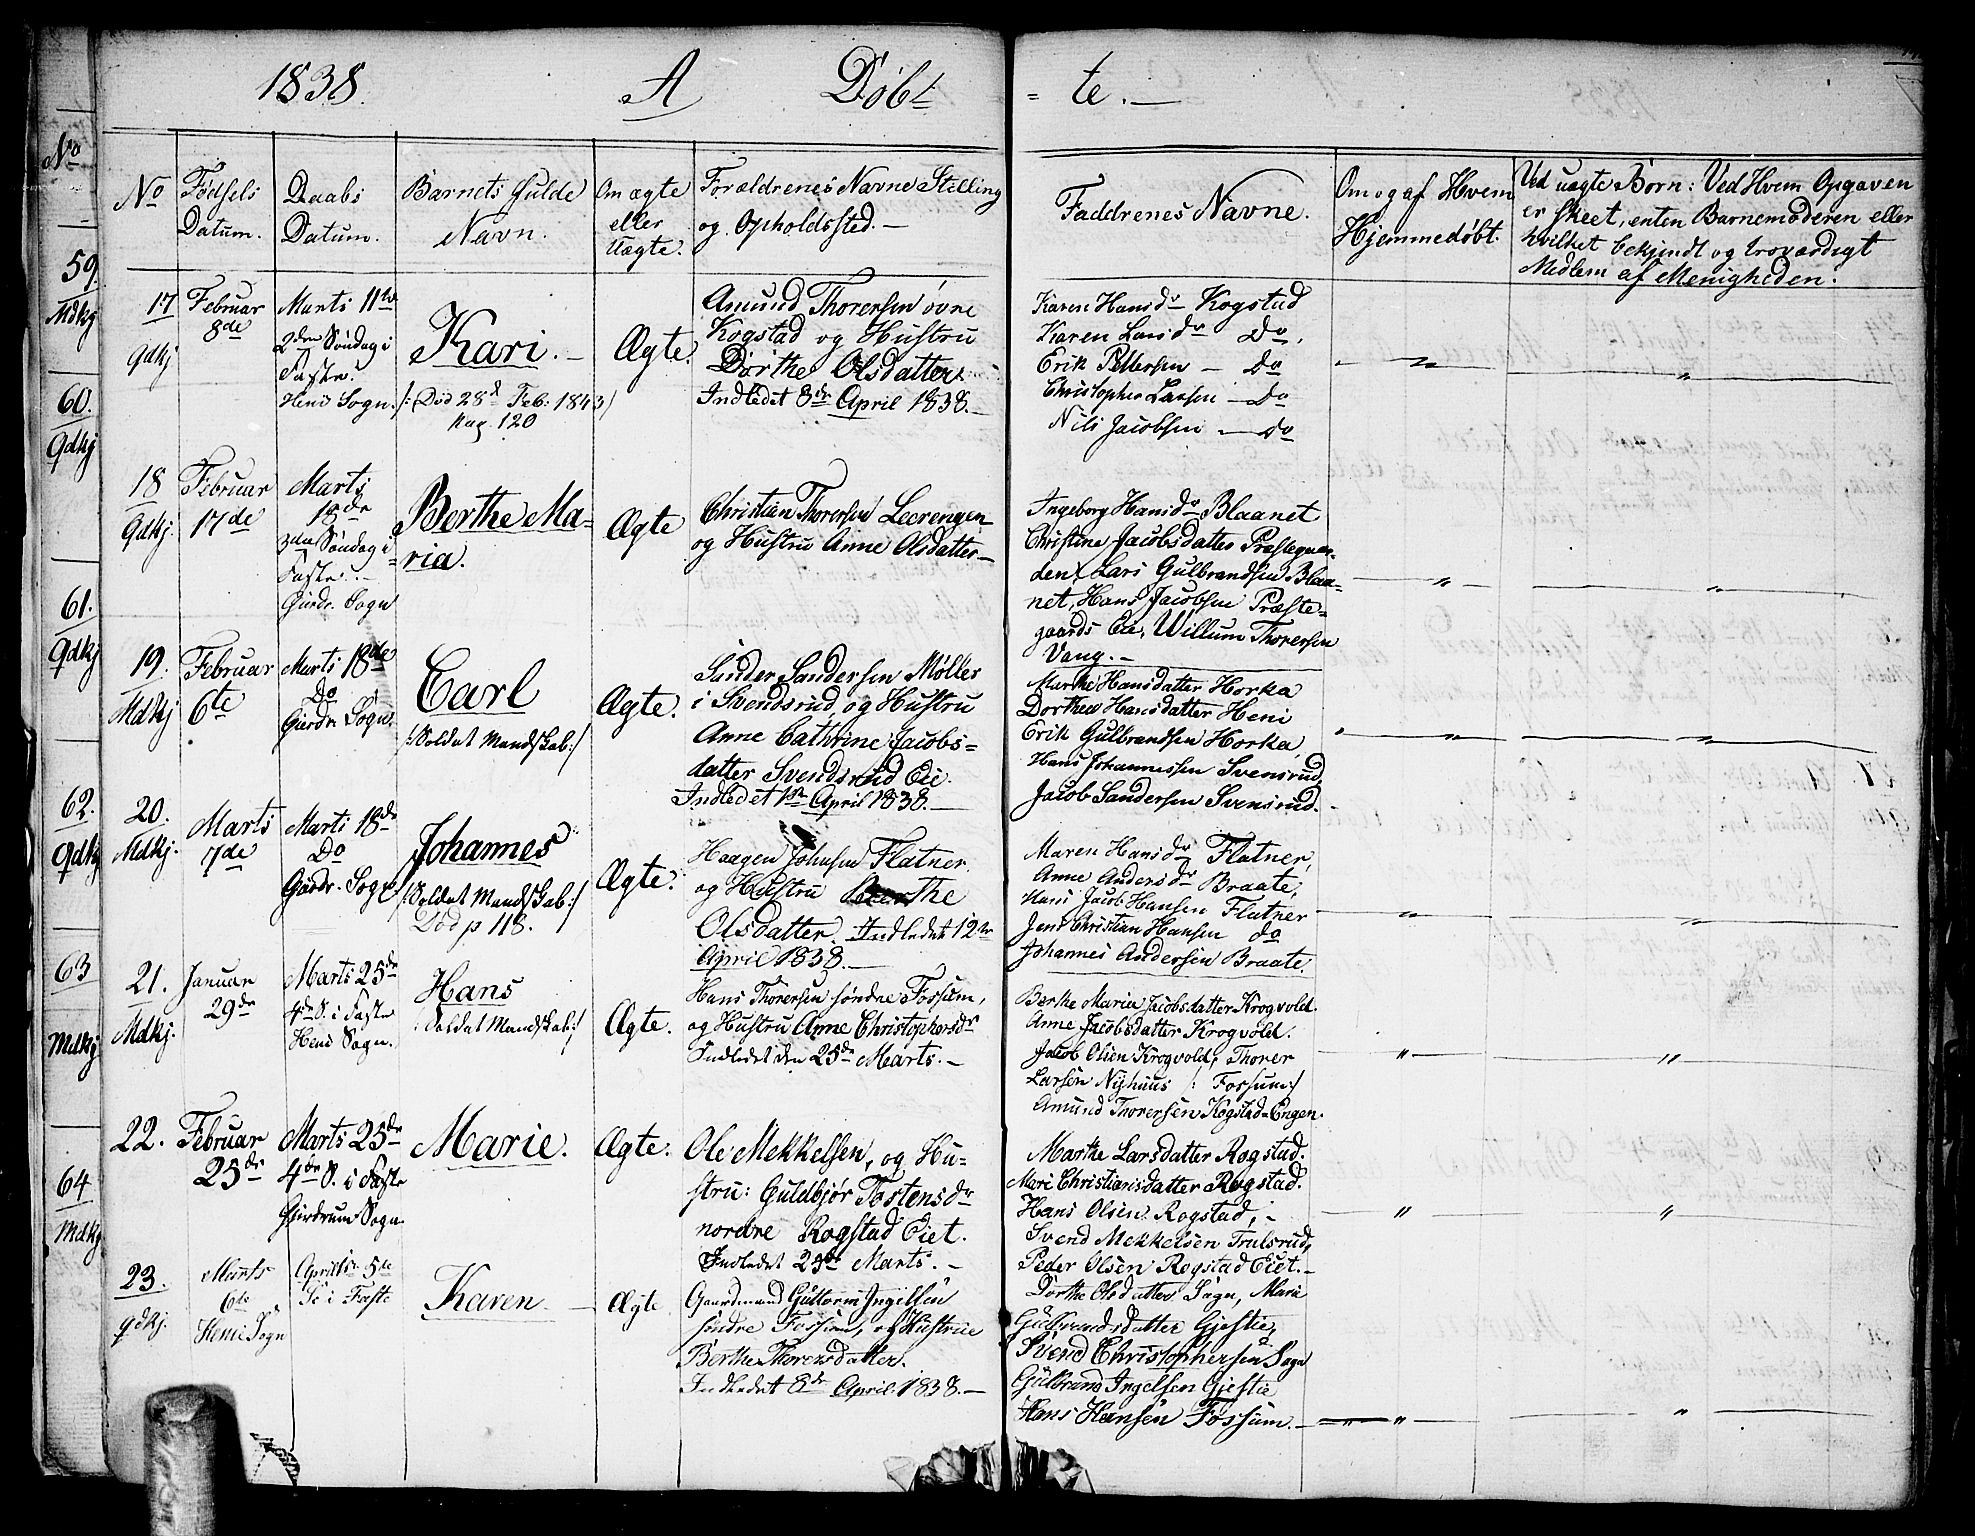 1838. A Døbt
= te. —
No
59.
Mdkj
60.
Qdkj
61.
Qdkj
62.
Qdkj
63
Mdkj
64
Mdkj
No
Fødsels
Datum.
Daabs
Datum.
Barnets fulde
Navn.
Om ægte
eller
Uægte.
Forældrenes Navne Stilling
og Opholdssted. —
Faddrenes Navne.
Om og af Hvem
Hjemmedøbt.
Ved uægte Børn: Ved Hvem Opgaven
er skeet, enten Barnemoderen eller
hvilket bekjendt og troværdigt
Medlem af Menigheden.
17
Qdkj
Februar
8de
Marts 11te
2den Søndag i
Faste.
Heni Sogn.
Kari. —
/: Død 28d Feb. 1843/
pag. 120
Ægte.
Amund Thorersen øvre
Kogstad og Hustru
Dorthe Olsdatter
Indledet 8de April 1838. —
Karen Hansdr Kogstad
Karen Larsdr Do,
Erik Pettersen — Do
Christopher Larsen — Do
Nils Jacobsen — Do
18
Qdkj.
Februar
17de
Marts
18de
3die Søndag i
Faste. —
Gjerdr. Sogn
Berthe Ma=
ria.
Ægte
Christian Thorersen Leerengen
og Hustru Anne Olsdatter —
Ingeborg Hansdr Blaanet
Christine Jacobsdatter Præstegaar-
den, Lars Gulbrandsen Blaa=
net, Hans Jacobsen Præste=
gaards Eie, Willum Thorersen
Vang. —
19.
Mdkj
Februar
6te
Marts 18de
Do
Gjerdr. Sogn
Carl
/: Soldat Mandskab :/
Ægte.
Sander Sandersen Møller
i Svendsrud og Hustru
Anne Cathrine Jacobs=
datter Svendsrud Eie.
Indledet 1ste April 1838. —
Marthe Hansdatter Horka
Dorthea Hansdatter Heni
Erik Gulbrandsen Horka,
Hans Johannessen Svensrud,
Jacob Sandersen Svensrud. -
20.
Mdkj.
Marts
7de
Marts 18de
Do
Gjerdr. Sogn
Johannes
/: Soldat Mandskab :/
Død p 118.
Ægte.
Haagen Johnsen Flatner
og Hustru Berthe
Olsdatter. Indledet 12te
April 1838. —
Maren Hansdr Flatner,
Anne Andersdr Braate,
Hans Jacob Hansen Flatner
Jens Christian Hansen do
Johannes Andersen Braate.
21.
Mdkj.
Januar
29de
Marts 25de
4de S. i Faste
Heni Sogn.
Hans
/: Soldat Mandskab :/
Ægte.
Hans Thorersen søndre Fossum,
og Hustru Anne Christophersdr
Indledet den 25de Marts. —
Berthe Maria Jacobsdatter Krogvold.
Anne Jacobsdatter Krogvold.
Jacob Olsen Krogvold, Thorer
Larsen Nyhuus /: Fossum :/
Amund Thorersen Kogstad-Engen.
22.
Februar
25de
Marts 25de
4de S. i Faste
Gjerdrum Sogn
Marie.
Ægte.
Ole Mekkelsen, og Hu=
stru: Guldbjør Tostensdr
nordre Rogstad Eiet.
Indledet 25de Marts. —
Marthe Larsdatter Rogstad.
Mari Christiansdatter Rogstad.
Hans Olsen Rogstad, -
Svend Mekkelsen Trulsrud,
Peder Olsen Rogstad Eiet. —
23.
Qdkj.
Marts
6te
Heni Sogn
April 5te
Se i Faste
Karen. —
Ægte
Gaardmand Guttorm Ingelsen
søndre Fossum, og Hustrue
Berthe Thorersdatter.
Indledet 8de April 1838. —
Dorthe Olsdatter Sagn, Marie
Gulbrandsdatter Gjestie,
Svend Christophersen Sagn
Gulbrand Ingelsen Gjestie
Hans Hansen Fossum. —